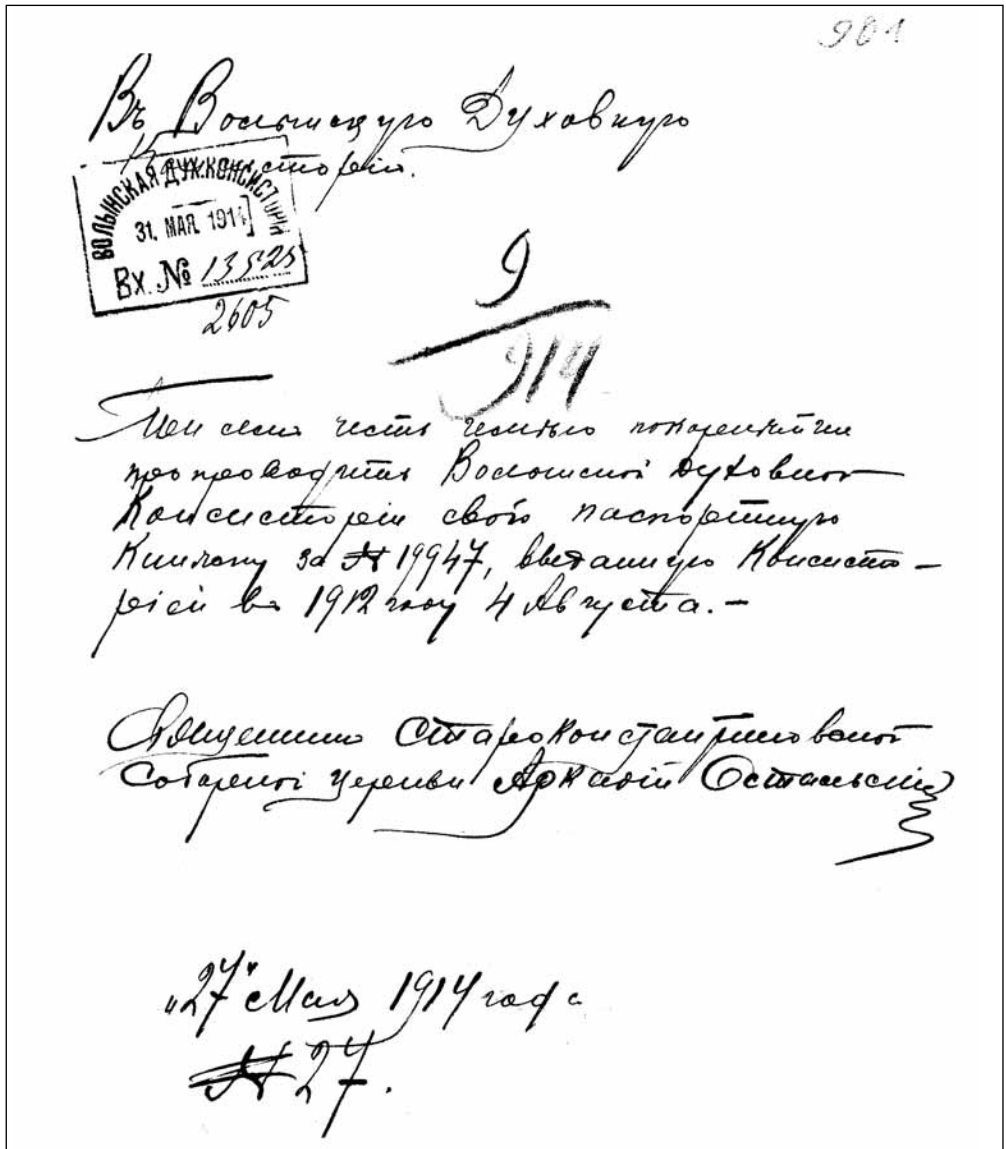 901
Въ Волынскую Духовную
Консисторію.
ВОЛЫНСКАЯ ДУХ. КОНСИСТОРІЯ
31. МАЯ. 1914
Вх. № 13525
2605
9
914
Имѣю честь при семъ покорнѣйше
препроводить Волынской Духовной
Консисторіи свою паспортную
Книжку за № 19947, выданную Консисто-
ріей въ 1912 году 4 Августа. –
Священникъ Староконстантиновской
Соборной церкви Аркадій Остальскій
„27" Мая 1914 года
№ 27.